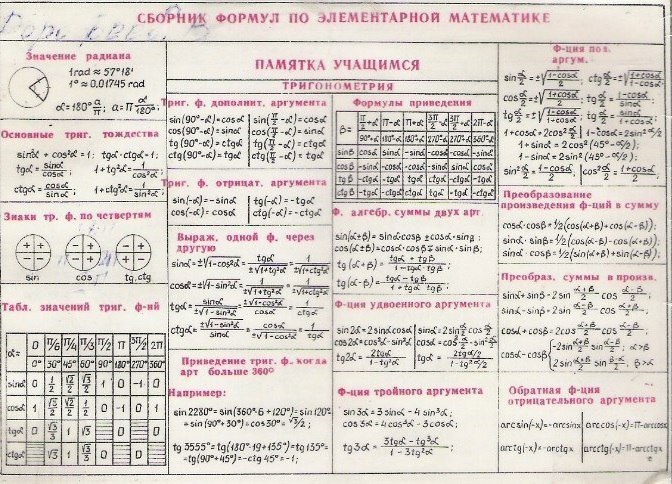 СБОРНИК ФОРМУЛ ПО ЭЛЕМЕНТАРНОЙ МАТЕМАТИКЕ
ПАМЯТКА УЧАЩИМСЯ
Значение радиана
1 rad ≈ 57°18'
1° ≈ 0,01745 rad
α=180° a/π; a=π α/180°
Основные триг. тождества
sin²α + cos²α = 1; tgα·ctgα=1;
tgα = sinα/cosα; 1+tg²α = 1/cos²α;
ctgα = cosα/sinα; 1+ctg²α = 1/sin²α
Знаки тр. ф. по четвертям
sin cos tg, ctg
Табл. значений триг. ф-ий
α= 0 π/6 π/4 π/3 π/2 π 3π/2 2π
0° 30° 45° 60° 90° 180° 270° 360°
sinα 0 1/2 √2/2 √3/2 1 0 -1 0
cosα 1 √3/2 √2/2 1/2 0 -1 0 1
tgα 0 √3/3 1 √3 0 0
ctgα √3 1 √3/3 0 0
ТРИГОНОМЕТРИЯ
Триг. ф. дополнит. аргумента
sin(90°-α)=cosα sin(π/2-α)=cosα
cos(90°-α)=sinα cos(π/2-α)=sinα
tg(90°-α)=ctgα tg(π/2-α)=ctgα
ctg(90°-α)=tgα ctg(π/2-α)=tgα
Триг. ф. отрицат. аргумента
sin(-α)=-sinα tg(-α)=-tgα
cos(-α)=cosα ctg(-α)=-ctgα
Выраж. одной ф. через
другую
sinα=±√1-cos²α = tgα/±√1+tg²α = 1/±√1+ctg²α
cosα=±√1-sin²α = 1/±√1+tg²α = ctgα/±√1+ctg²α
tgα = sinα/±√1-sin²α = ±√1-cos²α/cosα = 1/ctgα
ctgα = ±√1-sin²α/sinα = cosα/±√1-cos²α = 1/tgα
Приведение триг. ф. когда
арг больше 360°
Например:
sin 2280°=sin(360°·6+120°)=sin 120°
=sin(90°+30°)=cos30°=√3/2;
tg 3555°=tg(180°·19+135°)=tg 135°=
=tg(90°+45°)=-ctg 45°=-1;
Формулы приведения
β= π/2+α π-α π+α 3π/2-α 3π/2+α 2π-α
90°+α 180°-α 180°+α 270°-α 270°+α 360°-α
sinβ cosα sinα -sinα -cosα -cosα -sinα
cosβ -sinα -cosα -cosα -sinα sinα cosα
tgβ -ctgα -tgα tgα ctgα -ctgα -tgα
ctgβ -tgα -ctgα ctgα tgα -tgα -ctgα
Ф. алгебр. суммы двух арг
sin(α±β)=sinα·cosβ±cosα·sinβ;
cos(α±β)=cosα·cosβ∓sinα·sinβ;
tg(α+β)= tgα + tgβ/1-tgα·tgβ;
tg(α-β)= tgα - tgβ/1+tgα·tgβ
Ф-ция удвоенного аргумента
sin2α=2sinα·cosα; sinα=2sin α/2 cos α/2
cos2α=cos²α-sin²α; cosα=cos² α/2-sin² α/2
tg2α= 2tgα/1-tg²α; tgα= 2tgα/2/1-tg²α/2
Ф-ция тройного аргумента
sin3α=3sinα-4sin³α;
cos3α=4cos³α-3cosα;
tg3α= 3tgα-tg³α/1-3tg²α
Ф-ция пол.
аргум.
sin α/2=±√1-cosα/2; ctg α/2=±√1+cosα/1-cosα
cos α/2=±√1+cosα/2; tg α/2= 1-cosα/sinα
tg α/2=±√1-cosα/1+cosα; tg α/2= sinα/1+cosα
1+cosα=2cos² α/2 1-cosα=2sin² α/2
1+sinα=2cos²(45°-α/2);
1-sinα=2sin²(45°-α/2);
sin² α/2= 1-cosα/2 cos² α/2= 1+cosα/2
Преобразование
произведения ф-ций в сумму
cosα·cosβ=1/2(cos(α+β)+cos(α-β));
sinα·sinβ=1/2(cos(α-β)-cos(α+β));
sinα·cosβ=1/2(sin(α+β)+sin(α-β));
Преобраз. суммы в произв.
sinα+sinβ=2sin α+β/2 cos α-β/2;
sinα-sinβ=2sin α-β/2 cos α+β/2;
cosα+cosβ=2cos α+β/2 cos α-β/2;
cosα-cosβ { -2sin α+β/2 sin α-β/2, α>β
2sin α+β/2 sin β-α/2, β>α
Обратная ф-ция
отрицательного аргумента
arcsin(-x)=-arcsinx arccos(-x)=π-arccosx
arctg(-x)=-arctgx arcctg(-x)=π-arcctgx